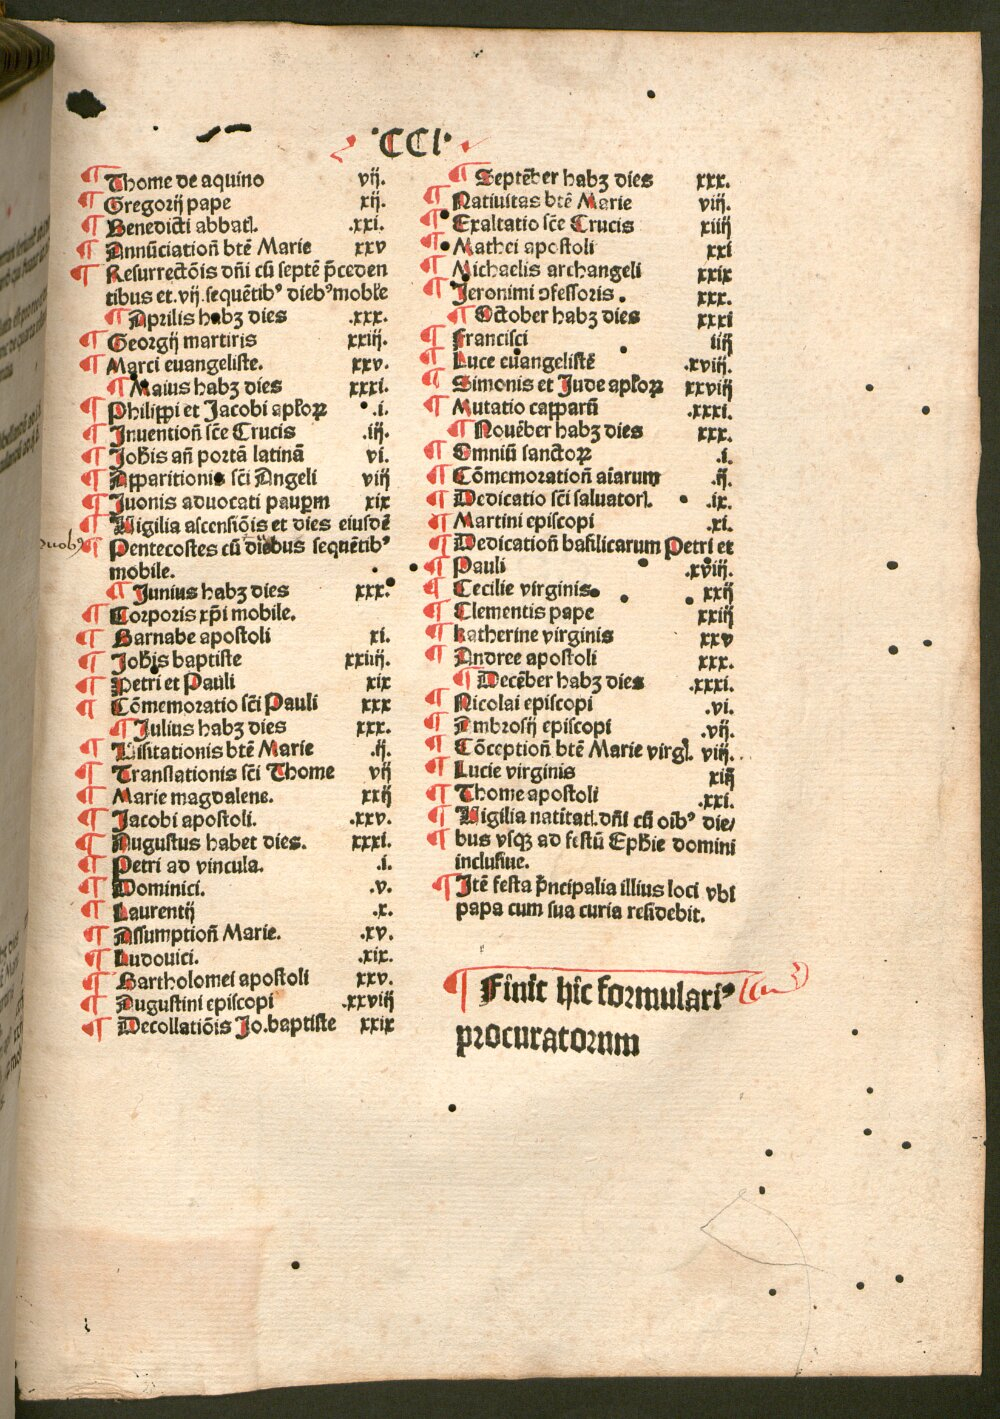 ·CCI·
¶ Thome de aquino vij.
¶ Gregorij pape xij.
¶ Benedicti abbatꝭ. .xxi.
¶ Annūciatioñ btē Marie xxv
¶ Resurrectōis dñi cū septē p̄ceden
tibus et .vij. sequētibꝰ diebꝰ mobłe
¶ Aprilis habꝫ dies .xxx.
¶ Georgij martiris xxiij.
¶ Marci euangeliste. xxv.
¶ Maius habꝫ dies xxxi.
¶ Philippi et Jacobi apłoꝝ .i.
¶ Inuentioñ scē Crucis .iij.
¶ Johis añ portā latinā vi.
¶ Apparitionis sci Angeli viij
¶ Juonis aduocati pauꝑm xix
¶ Uigilia ascensiōis et dies eiusdē
¶ Pentecostes cū diebus sequētibꝰ
mobile.
¶ Junius habꝫ dies xxx.
¶ Corporis xp̄i mobile.
¶ Barnabe apostoli xi.
¶ Johis baptiste xxiiij.
¶ Petri et Pauli xix
¶ Cōmemoratio sci Pauli xxx
¶ Julius habꝫ dies xxx.
¶ Uisitationis btē Marie .ij.
¶ Translationis sci Thome vij
¶ Marie magdalene. xxij
¶ Jacobi apostoli. .xxv.
¶ Augustus habet dies. xxxi.
¶ Petri ad vincula. .i.
¶ Dominici. .v.
¶ Laurentij .x.
¶ Assumptioñ Marie. .xv.
¶ Ludouici. .xix.
¶ Bartholomei apostoli xxv.
¶ Augustini episcopi .xxviij
¶ Decollatiōis Jo. baptiste xxix
¶ Septēber habꝫ dies xxx.
¶ Natiuitas btē Marie viij.
¶ Exaltatio scē Crucis xiiij
¶ Mathei apostoli xxi
¶ Michaelis archangeli xxix
¶ Jeronimi ɔfessoris. xxx.
¶ October habꝫ dies xxxi
¶ Francisci iiij
¶ Luce euangelistē .xviij.
¶ Simonis et Jude apłoꝝ xxviij
¶ Mutatio capparū .xxxi.
¶ Nouēber habꝫ dies xxx.
¶ Omniū sanctoꝝ .i.
¶ Cōmemoratioñ aīarum .ij.
¶ Dedicatio sci saluatorꝭ. .ix.
¶ Martini episcopi .xi.
¶ Dedicatioñ basilicarum Petri et
¶ Pauli .xviij.
¶ Cecilie virginis xxij
¶ Clementis pape xxiij
¶ Katherine virginis xxv
¶ Andree apostoli xxx.
¶ Decēber habꝫ dies .xxxi.
¶ Nicolai episcopi .vi.
¶ Ambrosij episcopi .vij.
¶ Cōceptioñ btē Marie virgꝭ. viij.
¶ Lucie virginis xiij
¶ Thome apostoli .xxi.
¶ Uigilia natitatꝭ. dñi cū oībꝰ die/
¶ bus vsqꝫ ad festū Ephie domini
inclusiue.
¶ Itē festa p̄ncipalia illius loci vbi
papa cum sua curia residebit.
¶ Finit hic formulariꝰ
procuratorum